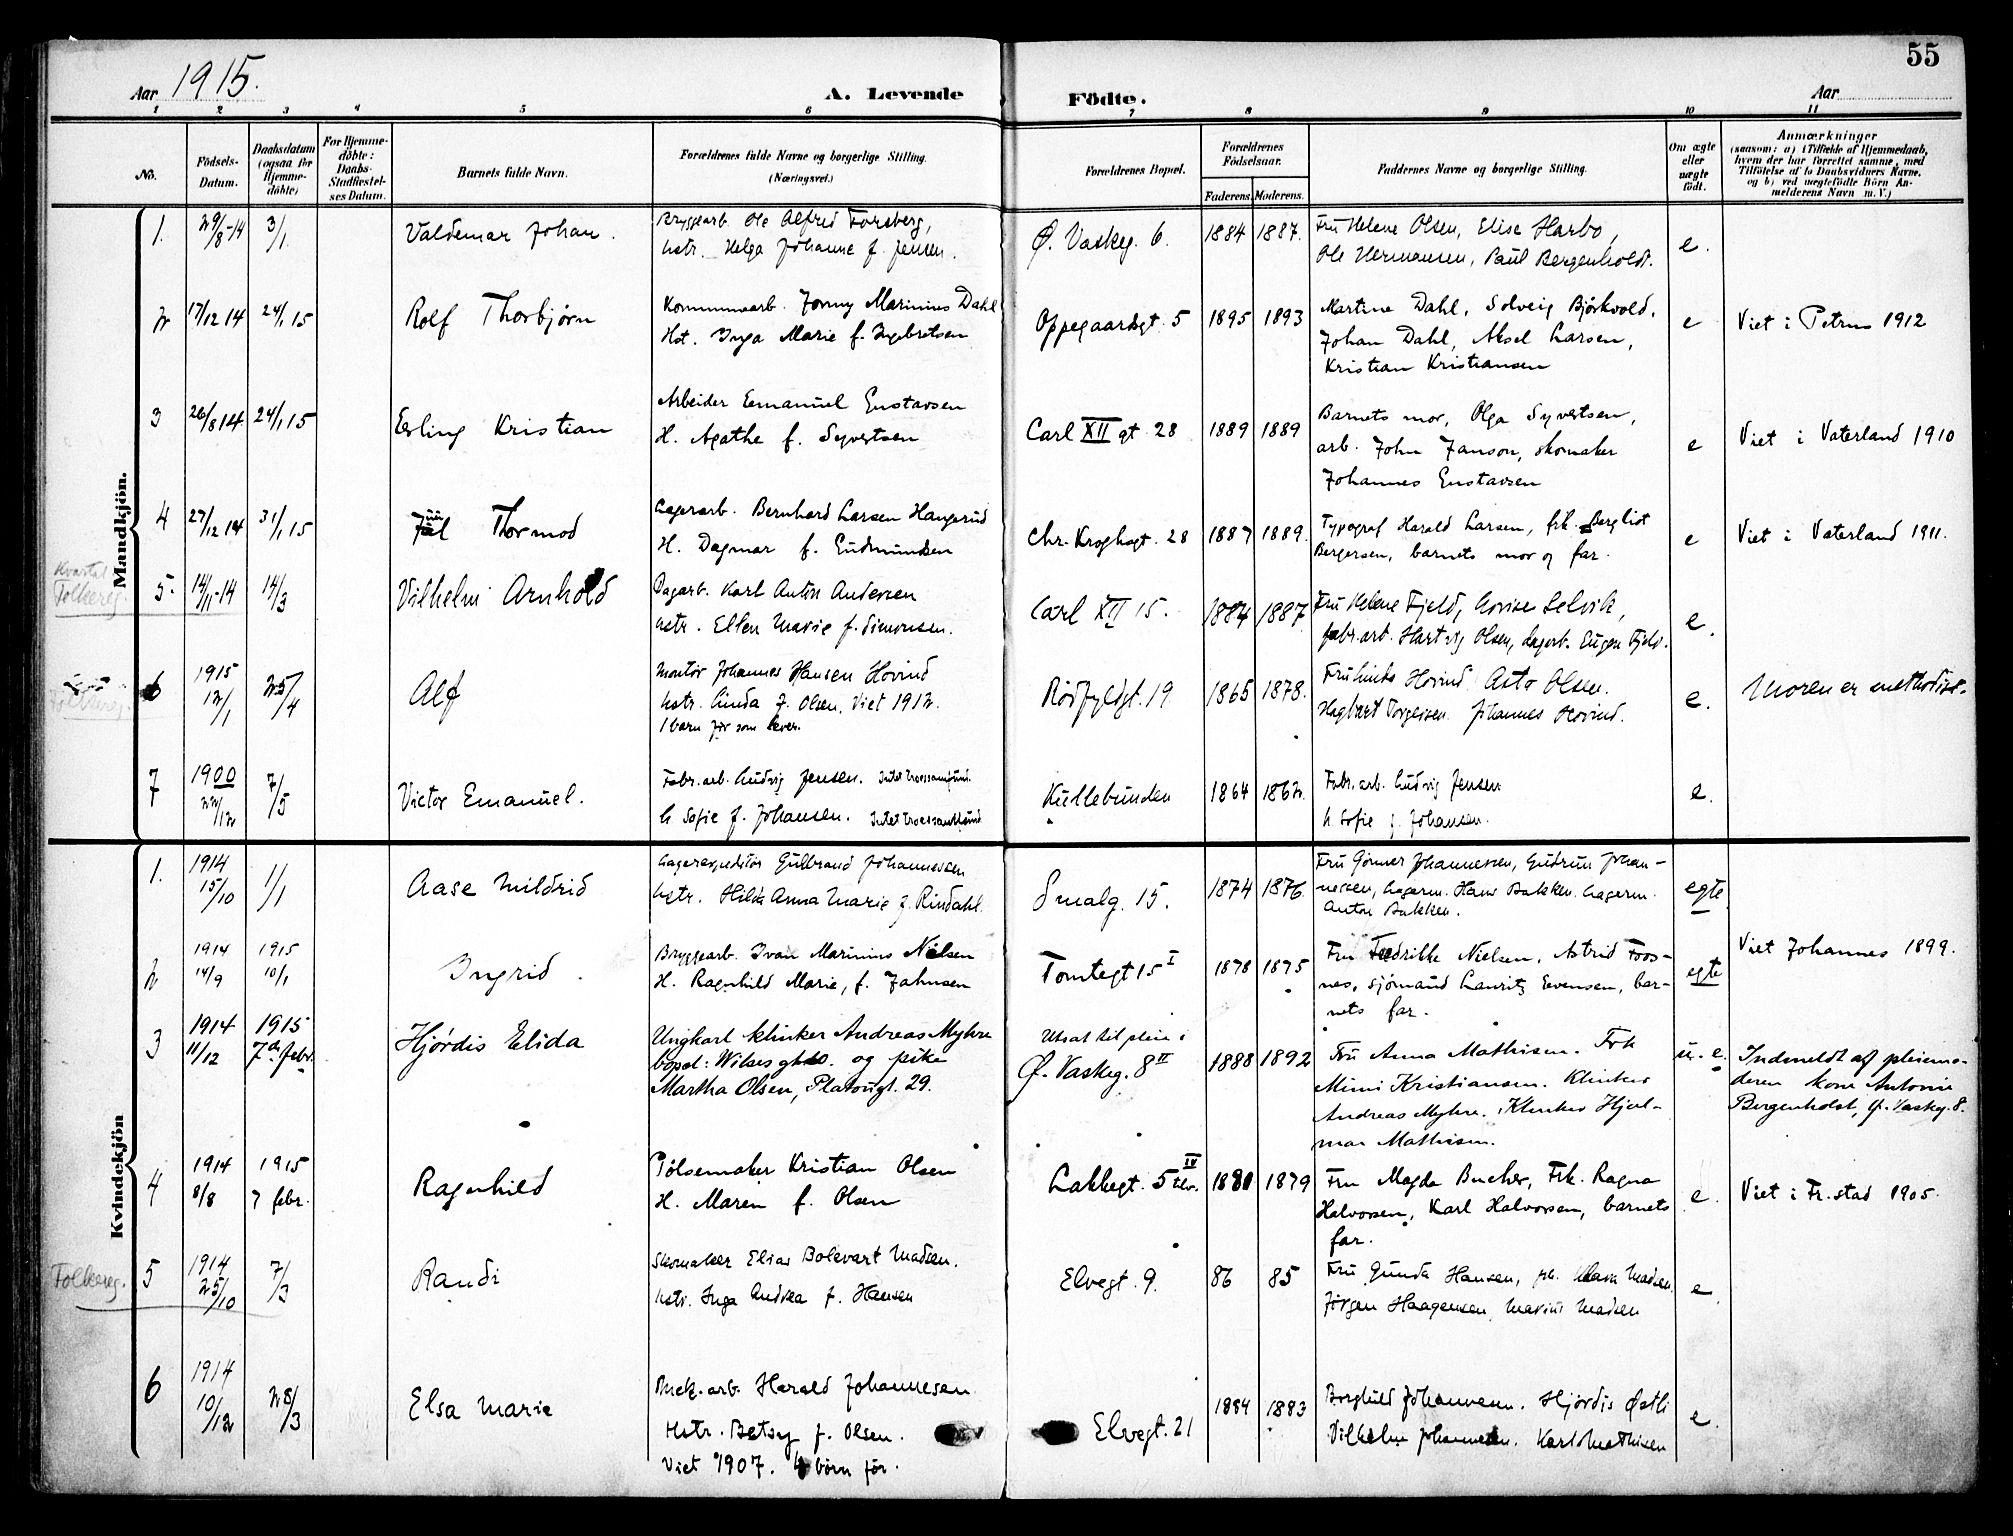 55
Aar 1915.
A. Levende Födte.
Aar
1 2 3 4 5 6 7 8 9 10 11
No.
Födsels-Datum.
Daabsdatum (ogsaa for Hjemme-döbte)
For Hjemme-döbte: Daabs-Stadfæstel-ses Datum.
Barnets fulde Navn.
Forældrenes fulde Navne og borgerlige Stilling. (Næringsvei.)
Forældrenes Bopæl.
Forældrenes Födselsaar.
Faderens. Moderens.
Faddernes Navne og borgerlige Stilling.
Om ægte eller uægte födt.
Anmærkninger
(saasom: a) i Tilfælde af Hjemmedaab, hvem der har forrettet samme, med Tilföielse af to Daabsvidners Navne, og b) ved uægtefödte Börn An-melderens Navn m. V.)
Mandkjön.
1. 29/8-14 3/1. Valdemar Johan.
Bryggearb. Ole Alfred Forsberg,
hstr. Helga Johanne f. Jensen.
Ø. Vaskeg. 6. 1884 1887.
Fru Helene Olsen, Elise Harbo,
Ole Hermansen, Paul Bergenholdt.
e.
2 17/12 14 24/1 15 Rolf Thorbjørn
Kommunearb. Jonny Marinius Dahl
Hst. Inga Marie f. Ingebretsen
Oppegaardsgt. 5 1895 1893
Martine Dahl, Solveig Bjørkvold,
Johan Dahl, Aksel Larsen,
Kristian Kristiansen
e Viet i Petrus 1912
3 26/8 14 24/1 15 Erling Kristian
Arbeider Emanuel Gustavsen
H. Agathe f. Syvertsen
Carl XII gt 28 1889 1889
Barnets mor, Olga Syvertsen,
arb. John Janson, skomaker
Johannes Gustavsen
e Viet i Vaterland 1910
4 27/12 14 31/1 15 Juul Thormod
Lagerarb. Bernhard Larsen Haugerud
H. Dagmar f. Gudmundsen
Chr. Kroghsgt. 28 1887 1889.
Typograf Harald Larsen, frk. Bergliot
Bergersen, barnets mor og far.
e Viet i Vaterland 1911.
Kvartal
Folkereg.
5. 14/11-14 14/3 Vilhelm Arnhold
Dagarb. Karl Anton Andersen
hstr. Ellen Marie f. Simonsen.
Carl XII 15. 1884 1887
Fru Helene Fjeld, Lovise Selvik,
fabr.arb. Hartvig Olsen, Lagerb. Eugen Fjeld.
e.
6 1915 12/1 25/4 Alf
Montør Johannes Hansen Hovind
hstr. Linda f. Olsen. Viet 1912.
1 barn før som lever.
Rødfyldgt. 19 1865 1878.
Hovind Asta Olsen.
Hagbart Torgersen. Johannes Hovind.
e. Moren er methodist.
7 1900 22/12 7/5 Victor Emanuel.
Fabr.arb. Ludvig Jensen. Intet troessamfund.
h Sofie f. Johansen. Intet troessamfund
Kullebunden 1864 1862.
Fabr. arb. Ludvig Jensen
h Sofie f. Johansen.
e.
Kvindekjön
1. 1914 15/10 1/1 Aase Mildrid
Lagerexpeditør Gulbrand Johannessen
hstr. Hilda Anna Marie f. Rindahl.
Smalg. 15. 1874 1876.
Fru Gønner Johannessen, Gudrun Johan-
nessen, Lagerm. Hans Bakken. Lagerm.
Anton Bakken.
egte
2 1914 14/9 1915 10/1 Ingrid.
Bryggearb. Ivan Marinius Nilsen
H. Ragnhild Marie, f. Jahnsen
Tomtegt 15 I 1878 1875
Fru Fredrikke Nielsen, Astrid Foos-
nes, sjømand Lauritz Evensen, bar-
nets far.
egte Viet Johannes 1899.
3 1914 11/12 1915 7de febr. Hjørdis Elida
Ungkarl klinker Andreas Myhre
bopæl: Wilses gt 10. og pike
Martha Olsen, Platougt. 29.
Utsat til pleie i
Ø. Vaskeg. 8 II 1888 1892
Fru Anna Mathisen. Frk
Mimi Kristiansen. Klinker
Andreas Myhre. Klinker Hjal-
mar Mathisen.
u. e. Indmeldt af pleiemo-
deren kone Antonie
Bergenholdt, Ø. Vaskeg. 8.
4 1914 8/8 1915 7 febr. Ragnhild
Pølsemaker Kristian Olsen
H. Maren f. Olsen
Lakkegt. 5 IV 1881 1879
Fru Magda Bucher, Frk. Ragna
Halvorsen, Karl Halvorsen, barnets
far.
e. Viet i Fr.stad 1905.
Folkereg.
5 1914 25/10 7/3 Randi
Skomaker Elias Bolevart Madsen.
hstr. Inga Andrea f. Hansen
Elvegt. 9. 86 85
Fru Gunda Hansen, frk. Klara Madsen
Jørgen Haagensen Marius Madsen
e.
6 1914 10/12 28/3 Elsa Marie
Mek.arb. Harald Johannesen.
Hstr. Betsy f. Olsen.
Viet 1907. 4 børn før.
Elvegt. 21 1884 1883
Borghild Johannesen. Hjørdis Østli
Vilhelm Johannesen. Karl Mathisen
e.